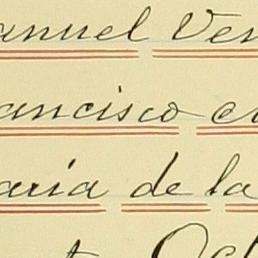 anuel Ven
ancisco
aria de la
Oc